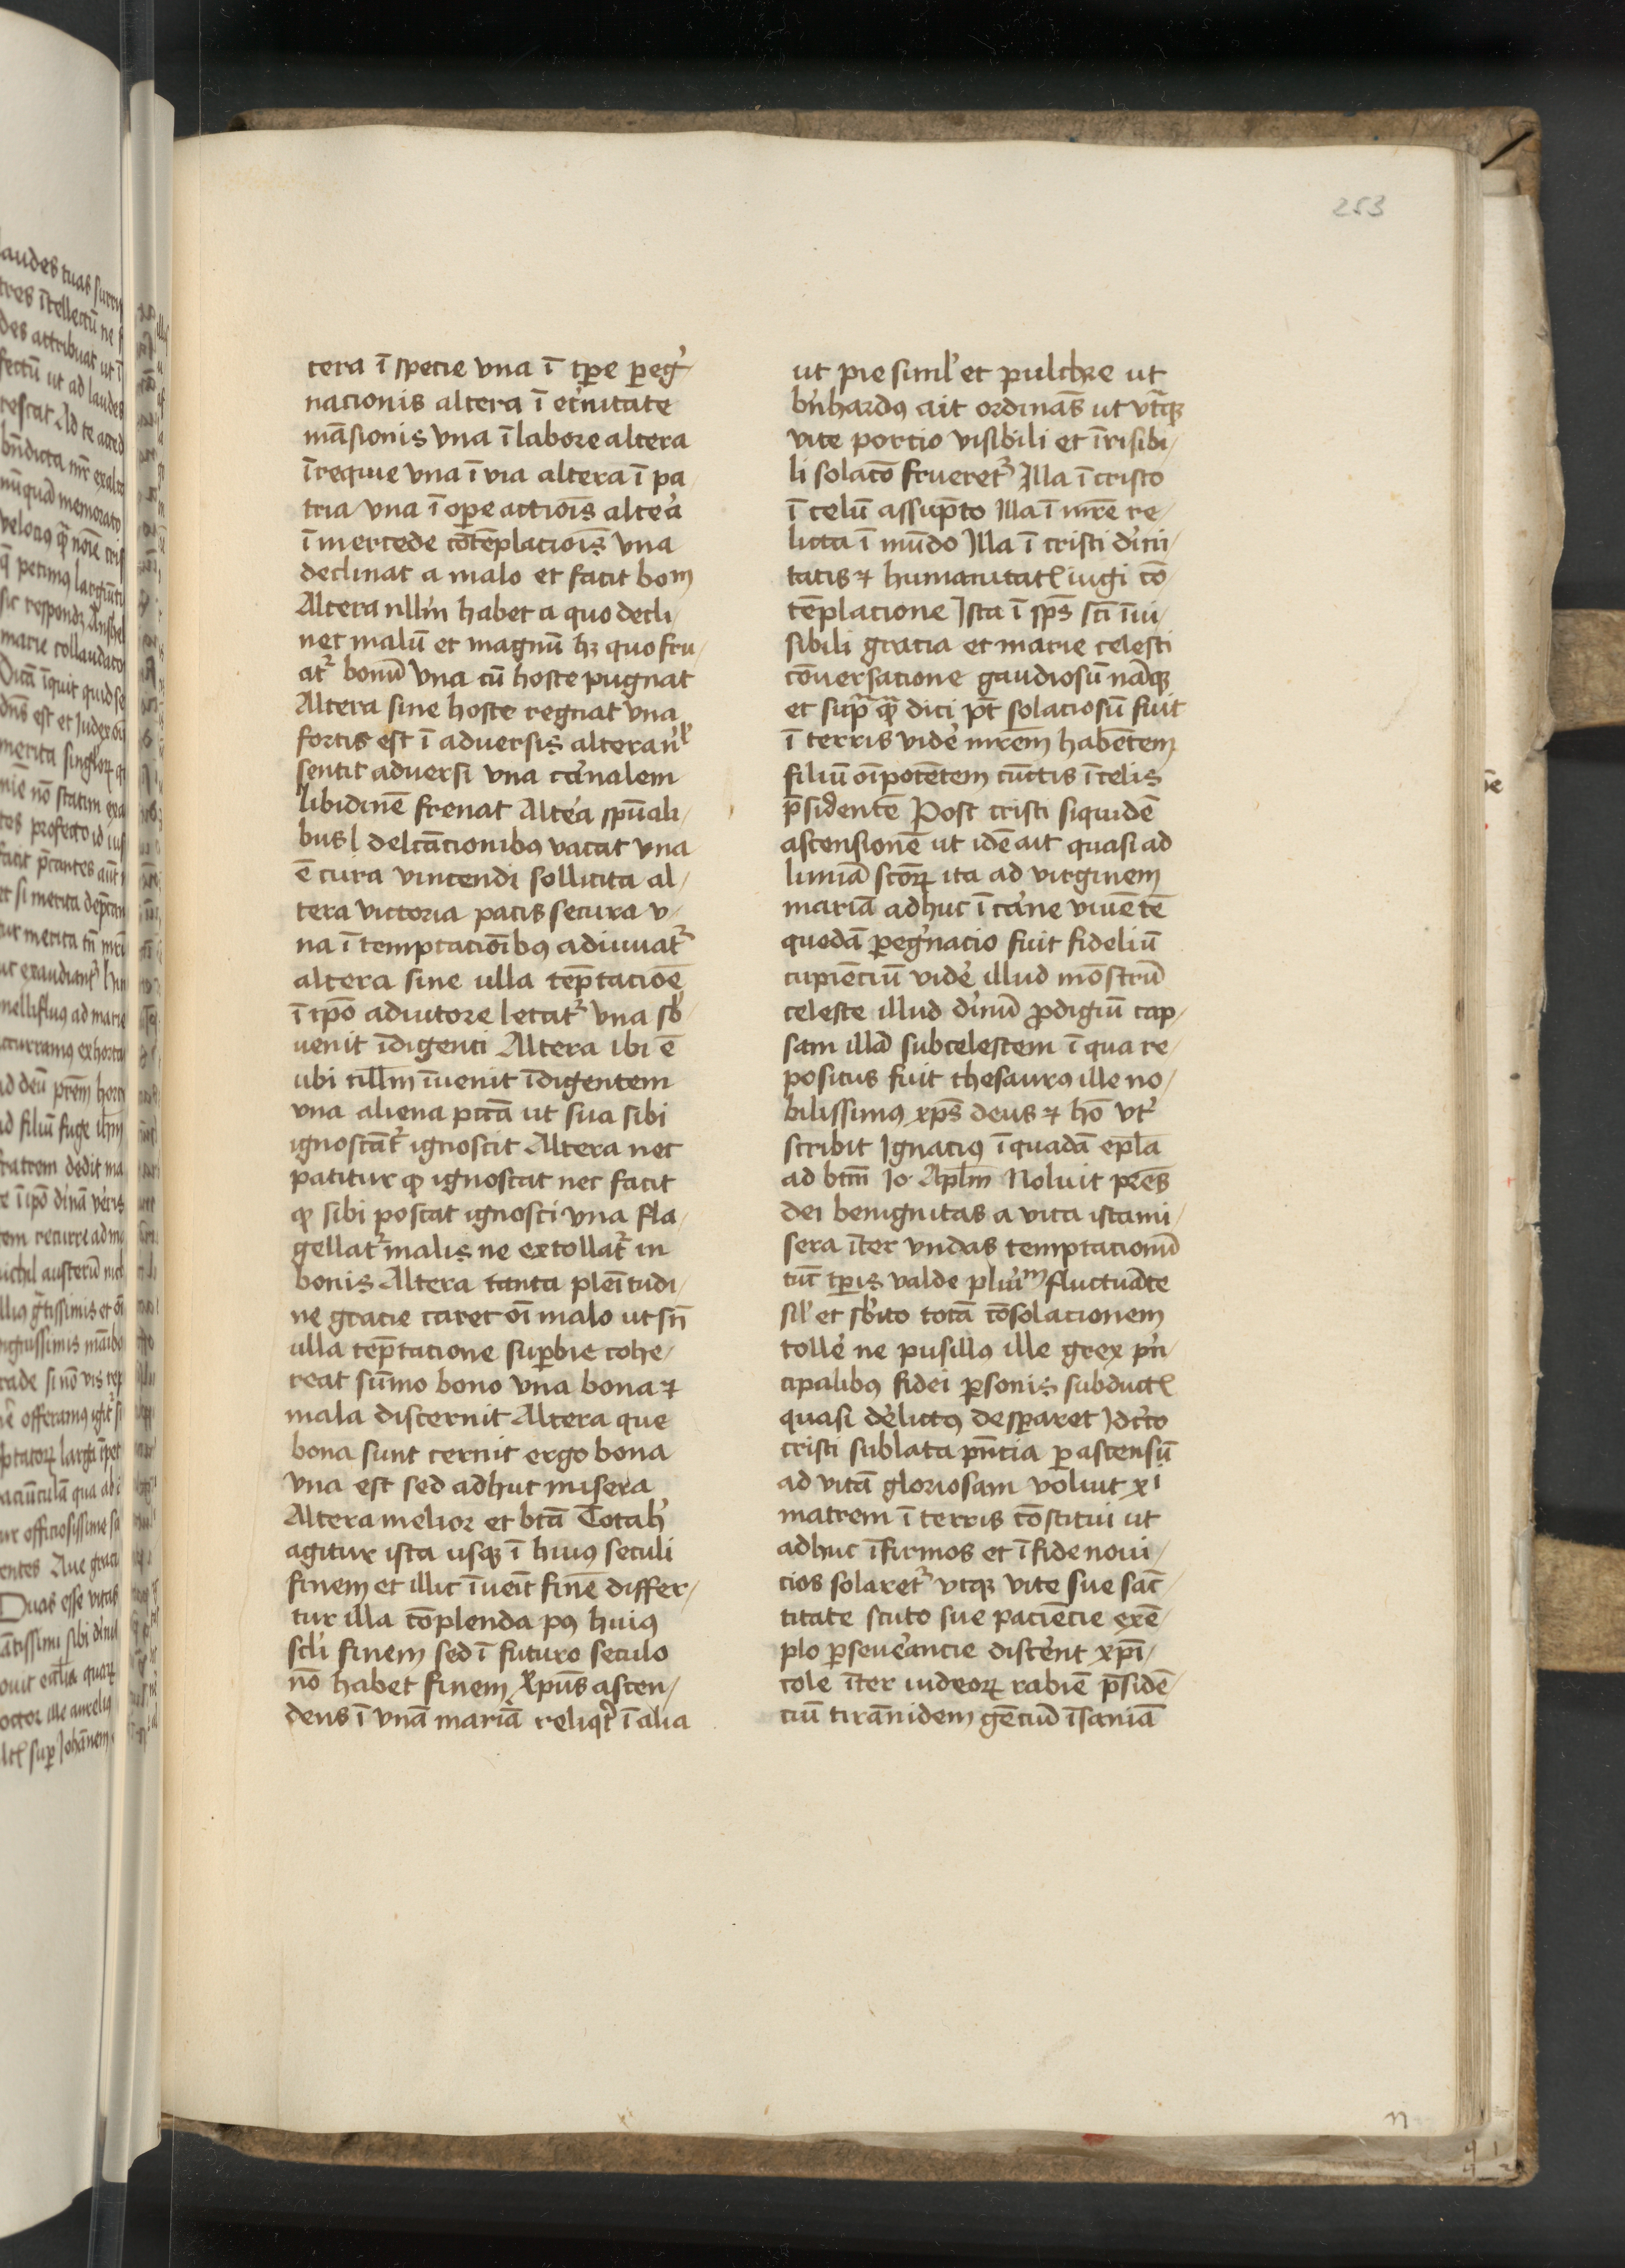 253
tera ī specie vna ī tp̄e peg̓
nacionis altera ī et̓nitate
māsionis vna ī labore altera
ī requie vna ī via altera ī pa
tria vna ī ope actiōis alte̓a
ī mercede cōtēplaciōis vna
declinat a malo et facit boᵐ
Altera nllm̄ habet a quo decli/
net malū et magnū hꝫ quo fru/
at᷑ bonū vna cū hoste pugnat
Altera sine hoste regnat vna
fortis est ī aduersis altera nˡ
sentit aduersi vna ca̓nalem
libidinē frenat Alte̓a spūali/
bus delc̄acionibꝰ vacat vna
ē cura vincendi sollicita al/
tera victoria pacis secura v/
na ī temptaciōibꝰ adiuuat᷑
altera sine ulla tēptaciōē
ī ip̄o adiutore letat᷑ vna sb̓
uenit īdigenti Altera ibi ē
ubi nllm̄ īuenit īdigentem
vna aliena pctā ut sua sibi
ignoscāt᷑ ignoscit Altera nec
patitur ꝙ ignoscat nec facit
ꝙ sibi poscat ignosci vna fla/
gellat᷑ malis ne extollat᷑ in
bonis Altera tanta plēitudi/
ne gracie caret oī malo ut sn̄
ulla tēptacione supbie cohe/
reat sūmo bono vna bona ⁊
mala discernit Altera que
bona sunt cernit ergo bona
vna est sed adhuc misera
Altera melior et btā Totalr̓
agitur ista usqꝫ ī huiꝰ seculi
finem et illic īueīt finē differ/
tur illa cōplenda pꝰ huiꝰ
scl̓i finem sed ī futuro seculo
nō habet finem xp̄us ascen/
dens ī vnā mariā reliqt̓ ī alia
ut pie simlˀ et pulchre ut
bn̓hardꝰ ait ordinās ut vt̄qꝫ
vite portio visibili et īuisibi/
li solacō frueret᷑ Illa ī cristo
ī celū assūpto Illa ī mr̄e re/
licta ī mūdo Illa ī cristi di̓ni/
tatis ⁊ humanitatꝭ iugi cō/
tēplacione Ista ī sp̄s sc̄i īui/
sibili gracia et marie celesti
cōuersacione gaudiosū nāqꝫ
et sup̄ꝗ̄ dici pt̄ solaciosū fuit
ī terris vide̓ mr̄em habētem
filiū oīpotētem cūctis ī celis
p̄sidentē Post cristi siquidē
ascensionē ut idē ait quasi ad
liminā sctōꝝ ita ad virginem
mariā adhuc ī ca̓ne viuētē
quedā peg̓nacio fuit fideliū
cupiēciū vide̓ illud mōstrū
celeste illud di̓nū ꝓdigiū cap/
sam illā subcelestem ī qua re/
positus fuit thesaurꝰ ille no/
bilissimꝰ xp̄s deus ⁊ hō vt᷑
scribit Ignaciꝰ ī quadā epl̄a
ad btm̄ Io· Apl̄m Noluit pr̄es
dei benignitas a vita ista mi/
sera īter vndas temptacionū
tūc tp̄is valde plu̓iᵐ fluctuāte
silˀ et sb̓ito totā cōsolacionem
tolle̓ ne pusillꝰ ille grex pn̓
cipalibꝰ fidei psonis subductꝭ
quasi de̓lictꝰ despararet Idc̓to
cristi sublata pn̄cia p ascensū
ad vitā gloriosam voluit xⁱ
matrem ī terris cōstitui ut
adhuc īfirmos et ī fide noui/
cios solaret᷑ vtqꝫ vite sue sāc/
titate scuto sue paciēcie exē/
plo pseue̓ancie disce̓nt xp̄i/
cole īter iudeoꝝ rabiē p̄sidē/
ciū tirānidem gēciū īsaniā
n